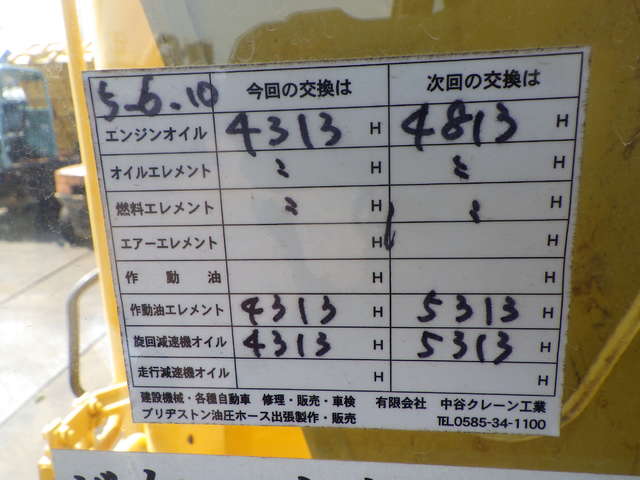 5-6-10 今回の交換は 次回の交換は
エンジンオイル 4313 H 4813 H
オイルエレメント 〃 H 〃 H
燃料エレメント 〃 H 〃 H
エアーエレメント H H
作動油 H H
作動油エレメント 4313 H 5313 H
旋回減速機オイル 4313 H 5313 H
走行減速機オイル H H
建設機械・各種自動車 修理・販売・車検 有限会社 中谷クレーン工業
ブリヂストン油圧ホース出張製作・販売 TEL0585-34-1100